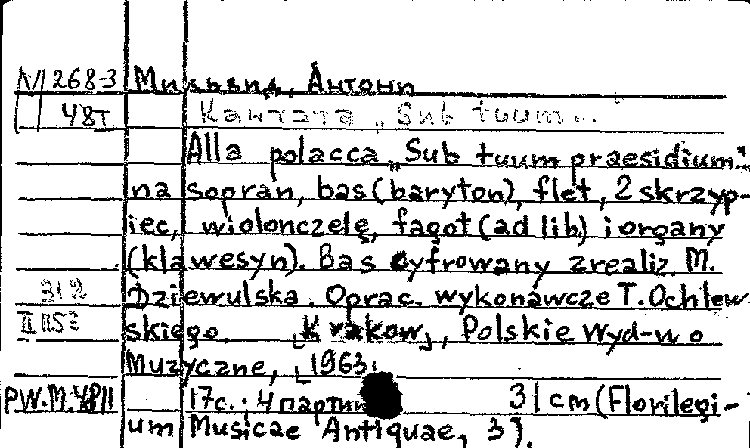 N 268-3 Мильвид, Антони
48т Кантата „Sub tuum...
Alla polacca „Sub tuum praesidium."
na sopran, bas (baryton), flet, 2 skrzyp-
iec, wiolonczelę, fagot (ad lib) i organy
(klawesyn). Bas cyfrowany zrealiz. M.
Dziewulska. Oprac. wykonawcze T. Ochlew-
skiego. [Krakow], Polskie Wyd-wo
Muzyczne, [1963]
17с.; 4 партии 31 cm (Florilegi-
um Musicae Antiquae, 3).